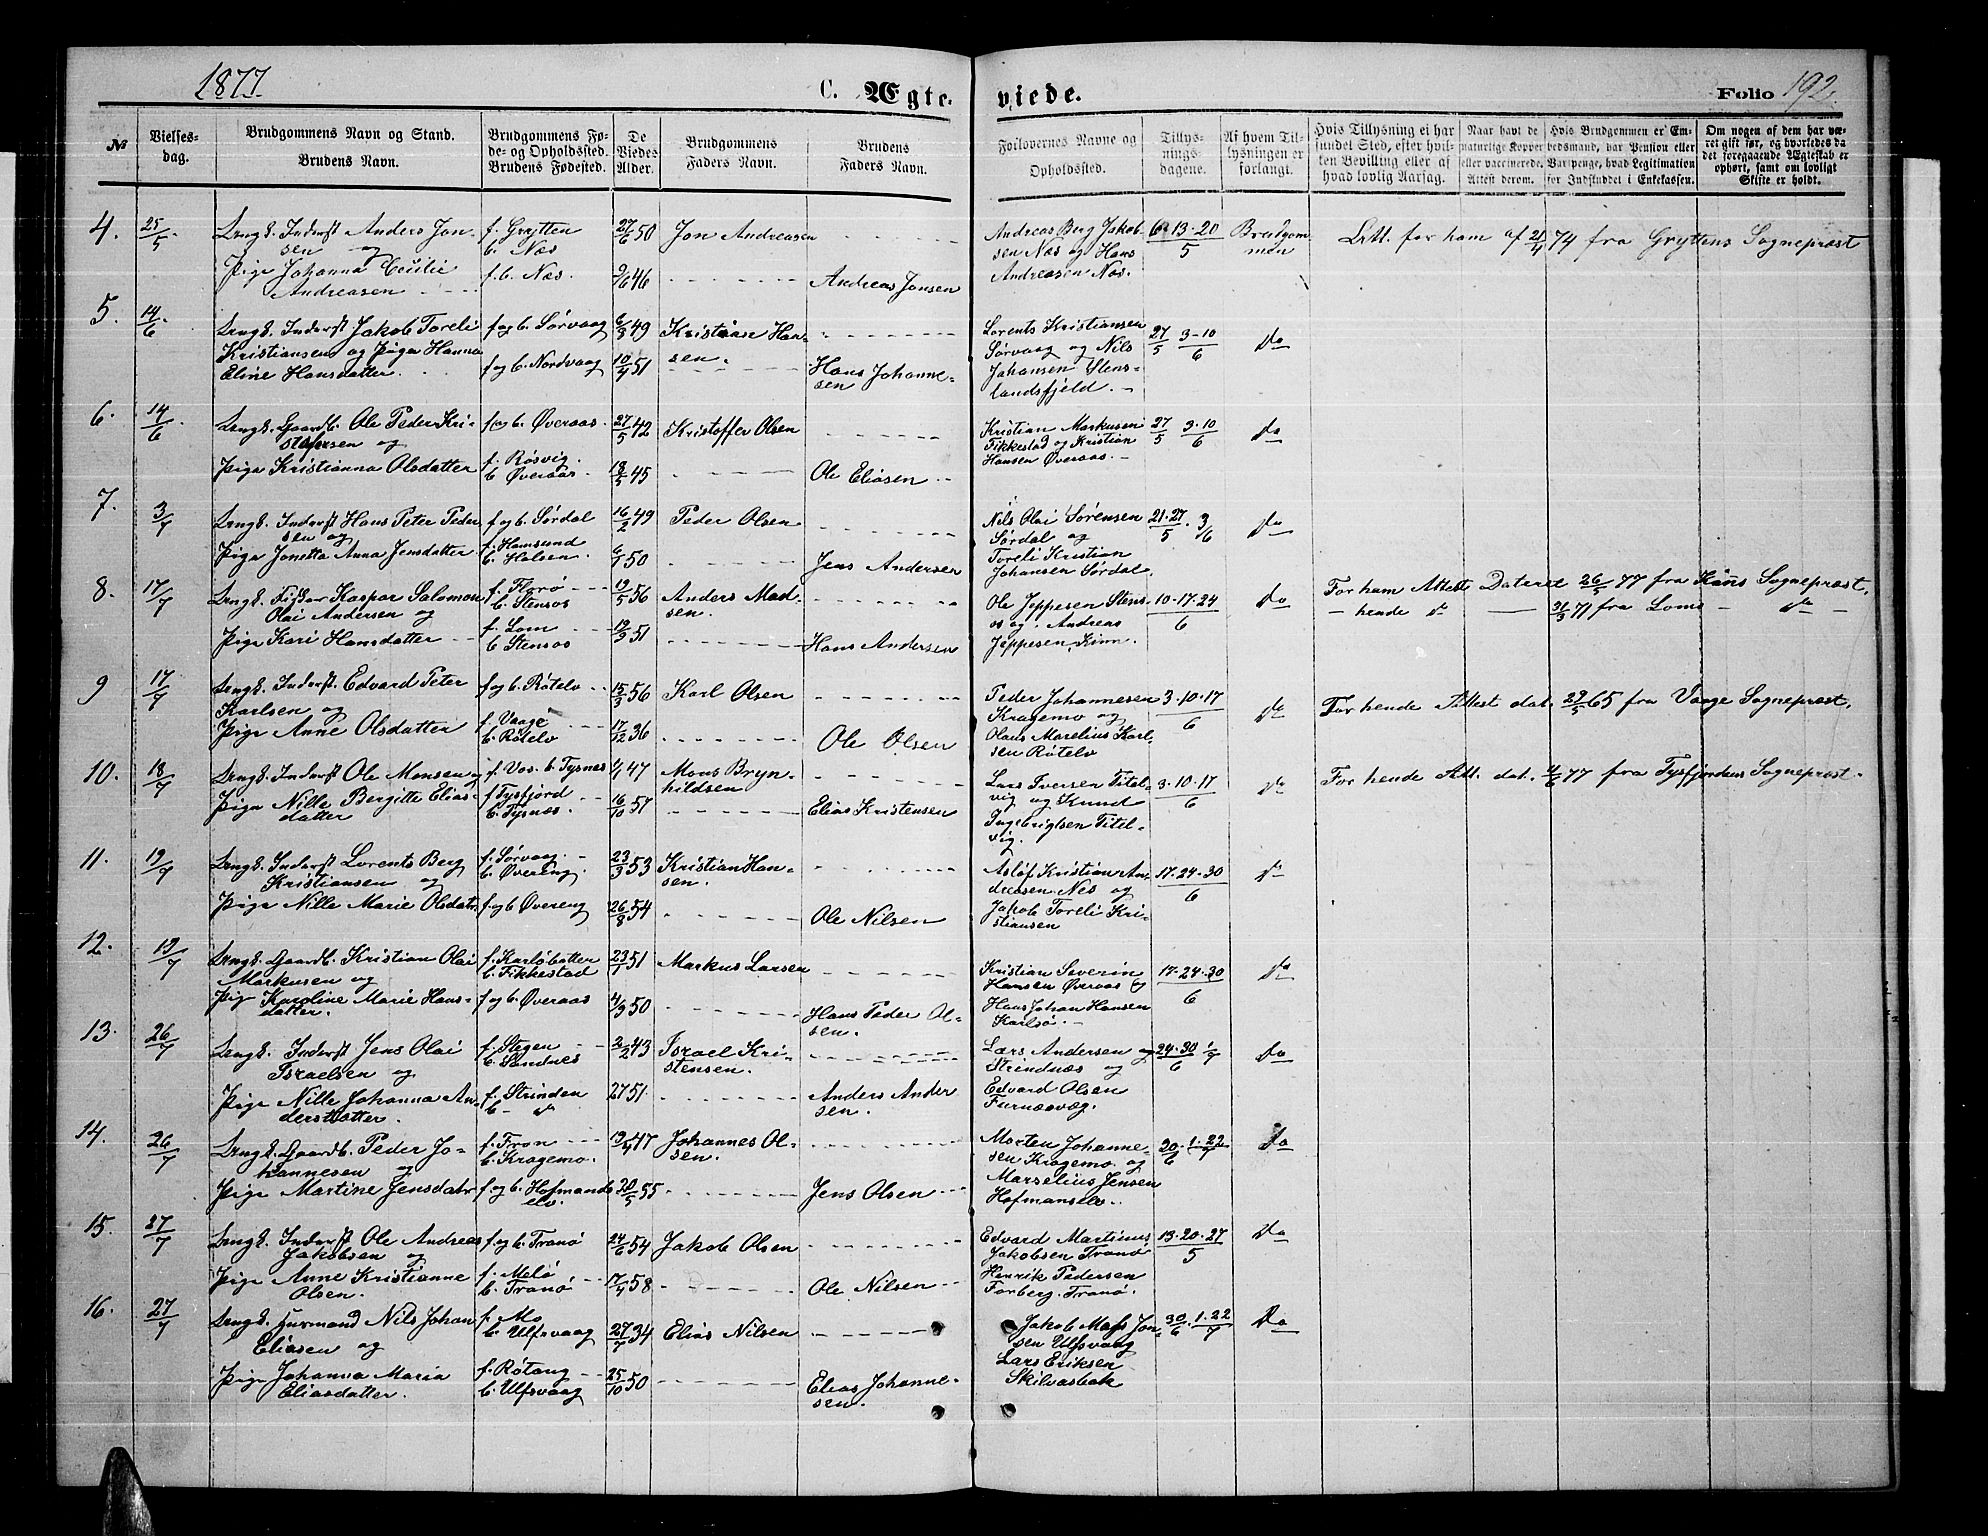 1877.
C. Ægteviede.
Folio 192.
№
Vielsesdag.
Brudgommens Navn og Stand.
Brudens Navn.
Brudgommens Føde- og Opholdssted.
Brudens Fødested.
De Viedes Alder.
Brudgommens Faders Navn.
Brudens Faders Navn.
Forlovernes Navne og Opholdssted.
Tillysningsdagene.
Af hvem Tillysningen er forlangt.
Hvis Tillysning ei har fundet Sted, efter hvilken Bevilling eller af hvad lovlig Aarsag.
Naar havt de naturlige Kopper eller vaccinerede. Attest derom.
Hvis Brudgommen er Embedsmand, var Pension eller Vartpenge, hvad Legitimation for Indskuddet i Enkekassen.
Om nogen af dem har været gift før, og hvorledes da det foregaaende Ægteskab er ophørt, samt om lovligt Skifte er holdt.
4. 25/5. Ungk. Inderst Anders Jonsen og f. Grytten b. Næs 27/6 50 Jon Andreasen
Pige Johanna Cecilie Andreasen f.b. Næs. 9/6 46 Andreas Jonsen
Andreas Berg Jakobsen Næs og Hans Andreasen Næs. 6 13. 20/5 Brudgommen
Att. for ham af 21/4 74 fra Gryttens Sognepræst
5. 14/6. Ungk. Inderst Jakob Toreli Kristiansen og Pige Hanna Eline Hansdatter. f og b. Sørvaag 6/3 49 Kristian Hansen.
f og b. Nordvaag 10/4 51 Hans Johannesen
Lorents Kristiansen Sørvaag og Nils Johansen Stenslandsfjeld. 27/5 3-10/6 Do
6. 14/6. Ungk. Gaardb. Ole Peder Kristofersen og f og b. Øveraas 27/5 42 Kristoffer Olsen
Pige Kristianna Olsdatter f. Røsvig. b. Øveraas. 18/5 45 Ole Eliasen
Kristian Markusen Fikkestad og Kristian Hansen Øveraas. 27/5 3-10/6 Do
7. 3/7 Ungk. Inderst Hans Peter Pedersen og f og b. Sørdal 16/2 49 Peder Olsen
Pige Jonetta Anna Jensdatter f. Hamsund b. Holsen. 6/7 50 Jens Andersen
Nils Olai Sørensen Sørdal og Toreli Kristian Johansen Sørdal. 21. 27/5. 3/6 Do
8. 17/7 Ungk. Fisker Kaspar Salomon Olai Andersen og f. Florø b. Stensos 19/5 56 Anders Madsen.
Pige Kari Hansdatter f. Lom b. Stensos 19/3 51 Hans Andersen
Ole Jeppesen Stensos og Andreas Jeppesen Kinn. 10. 17. 24/6 Do
For ham Attest Dateret 26/5 77 fra Kins Sognepræst,
- hende do 31/3 77 fra Loms - do -
9 17/7 Ungk. Inderst. Edvard Peter Karlsen og f og b. Røtelv 15/3 56 Karl Olsen
Pige Anne Olsdatter f. Vaage b. Røtelv 17/12 36 Ole Olsen
Peder Johannesen Kragemo og Olaus Marelius Karlsen Røtelv 3. 10. 17/6 Do
For hende Attest dat. 29/5 65 fra Vaage Sognepræst.
10. 18/7 Ungk. Inderst Ole Monsen og f. Vos. b. Tysnes 4/1 47 Mons Brynhildsen
Pige Nille Bergitte Eliasdatter f. Tysfjord b. Tysnes. 16/10 57 Elias Kristensen
Lars Iversen Titelvig og Knud Ingebrigtsen Titelvig. 3. 10. 17/6 Do
For hende Att. dat. 4/6 77 fra Tysfjordens Sognepræst.
11. 19/7 Ungk. Inderst Lorents Berg Kristiansen og f. Sørvaag. b. Øvereng. 23/3 53 Kristian Hansen.
Pige Nille Marie Olsdatr f. og b Øvereng 26/8 54 Ole Nilsen
Asløf Kristian Andreasen Nes og Jakob Toreli Kristiansen 17. 24. 30/6 Do
12. 19/7 Ungk. Gaardb. Kristian Olai Markusen og f. Karløbatter b. Fikkestad 23/1 51 Markus Larsen
Pige Karoline Marie Hansdatter. f og b. Øveraas 4/9 50 Hans Peder Olsen.
Kristian Severin Hansen Øveraas og Hans Johan Hansen Karlsø. 17. 24. 30/6 Do
13. 26/7 Ungk. Inderst Jens Olai Israelsen og f. Stegen b. Sandnes 2/2 43 Israel Kristensen.
Pige Nille Johanna Andersdatter. f. Strinden b. - do 27 51. Anders Andersen.
Lars Andersen Strindnæs og Edvard Olsen Furnæsvaag. 24. 30/6 1/7 Do
14. 26/7 Ungk. Gaardb. Peder Johannesen og f. Fron b. Kragemo. 19/4 47 Johannes Olsen.
Pige Martine Jensdatr f og b. Hofmandselv. 20/5 55 Jens Olsen
Morten Johannesen Kragemo og Marselius Jensen Hofmanselv. 30/6. 1. 22/7 Do
15. 27/7 Ungk. Inderst Ole Andreas Jakobsen og f og b. Tranø 24/6 54 Jakob Olsen
Pige Anne Kristianne Olsen. f. Melø b. Tranø 17/4 58 Ole Nilsen
Edvard Martinus Jakobsen Tranø Henrik Pedersen Forberg, Tranø. 13. 20. 27/5 Do
16. 27/7 Ungk. Husmand Nils Johan Eliasen og f. Mo b. Ulfsvaag 27/7 34 Elias Nilsen
Pige Johanna Maria Eliasdatter. f. Røtang b. Ulfsvaag 25/10 50 Elias Johannesen.
Jakob Mass Jonsen Ulfsvaag Lars Eriksen Skilvasbak 30/6. 1. 22/7 Do